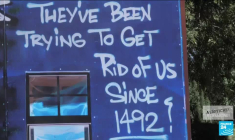 They've Been
Trying To Get
Rid Of Us
Since
1492